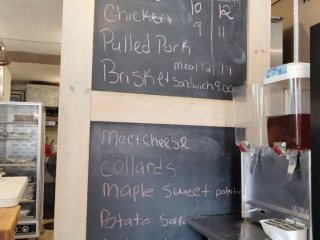 Chicken 10 12
9 11
Pulled Pork
Brisket meal 12 14
sandwich 9.00
Mac+cheese
collards
maple sweet potato
Potato Sala